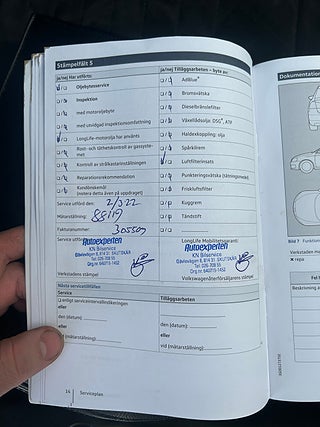 Stämpelfält 5
ja/nej Har utförts:
Oljebytesservice
Inspektion
med motoroljebyte
med utvidgad inspektionsomfattning
LongLife-motorolja har använts
Rost- och täthetskontroll av gassystemet
Kontroll av strålkastarinställningen
Reparationsrekommendation
Kundönskemål
(notera detta även på uppdraget)
ja/nej Tilläggsarbeten – byte av:
AdBlue®
Bromsvätska
Dieselbränslefilter
Växellådsolja: DSG®, ATF
Haldexkoppling: olja
Spärrklirem
Luftfilterinsats
Punkteringsvätska (tätningsmedel)
Friskluftsfilter
Kuggrem
Tändstift
Service utförd den: 2/5 22
Mätarställning: 88119
Fakturanummer: 305509
Service utförd
Autoexperten
KN Bilservice
Gävlevägen 8, 814 31 SKUTSKÄR
Tel. 026-708 55
Verkstadens stämpel
LongLife Mobilitetsgaranti:
Autoexperten
KN Bilservice
Gävlevägen 8, 814 31 SKUTSKÄR
Tel. 026-708 55
Volkswagenåterförsäljarens stämpel
Nästa servicetillfällen
Service
enligt serviceintervallindikeringen
eller
den (datum):
eller
vid (mätarställning):
Tilläggsarbeten
den (datum):
eller
vid (mätarställning):
14 Serviceplan
Dokumentation
Bild 7 Funktions
Verkstaden m
× repa
Fel